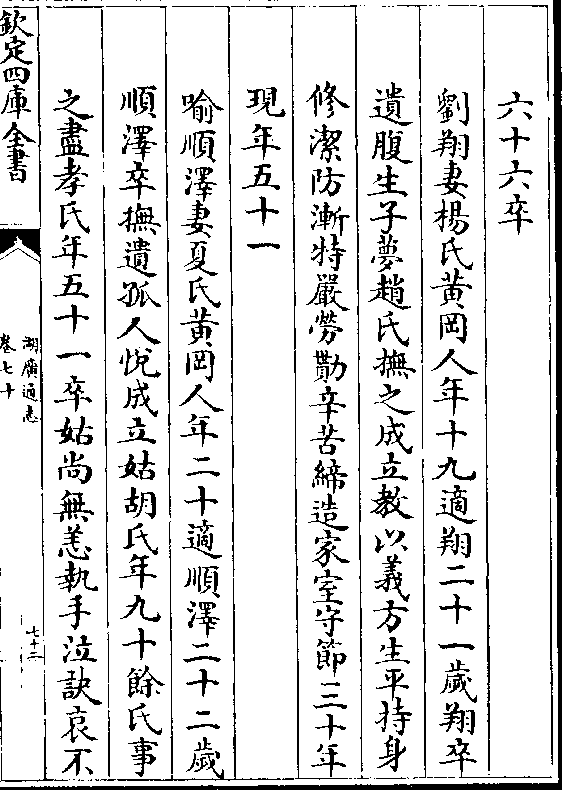 六十六卒
劉翔妻楊氏黄岡人年十九適翔二十一歲翔卒
遺腹生子夢趙氏撫之成立教以義方生平持身
修潔防漸特嚴勞勩辛苦締造家室守節三十年
現年五十一
喻順澤妻夏氏黄岡人年二十適順澤二十二歲
順澤卒撫遺孤人悅成立姑胡氏年九十餘氏事
之盡孝氏年五十一卒姑尚無恙執手泣訣哀不
欽定四庫全書
湖廣通志
卷七十
七十二